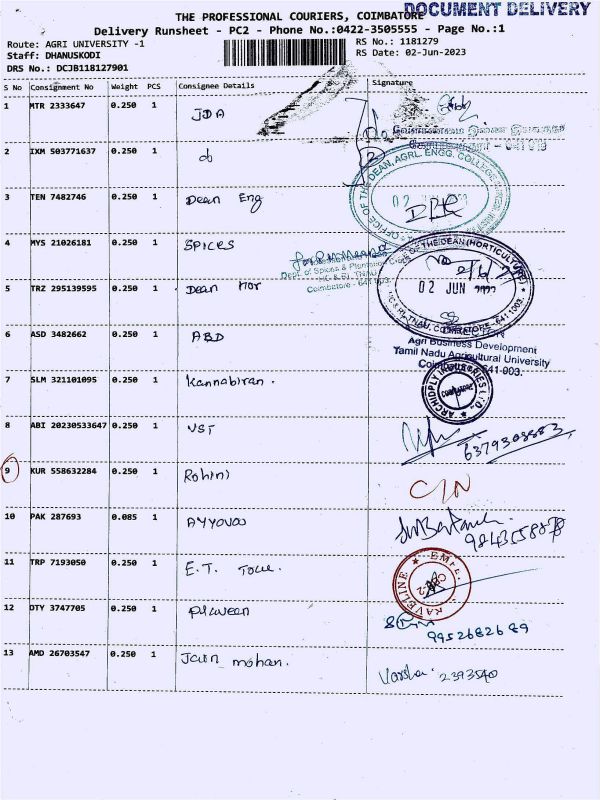 DOCUMENT DELIVERY
THE PROFESSIONAL COURIERS, COIMBATORE
Delivery Runsheet - PC2 - Phone No.:0422-3505555 - Page No.:1
Route: AGRI UNIVERSITY -1
Staff: DHANUSKODI
DRS No.: DCJB118127901
RS No.: 1181279
RS Date: 02-Jun-2023
S No Consignment No Weight PCS Consignee Details Signature
1 MTR 2333647 0.250 1 JDA
2 IXM 503771637 0.250 1 do
3 TEN 7482746 0.250 1 Dean Eng
OFFICE OF THE DEAN, AGRL. ENGG. COLLEGE
02
4 MYS 21026181 0.250 1 SPICES
Dept. of Spices & Plantation Crops
HC & RI, TNAU
Coimbatore - 641 003.
5 TRZ 295139595 0.250 1 Dean Hor
OF THE DEAN (HORTICULTURE)
02 JUN
HC & RI, TNAU, COIMBATORE - 641 003.
6 ASD 3482662 0.250 1 ABD
Agri Business Development
Tamil Nadu Agricultural University
Coimbatore - 641 003.
7 SLM 321101095 0.250 1 Kannabiran.
ARCHIDPLY INDUSTRIES LTD.
8 ABI 20230533647 0.250 1 VST
6379308883
9 KUR 558632284 0.250 1 Rohini
10 PAK 287693 0.085 1 AYYOVOO
9843558878
11 TRP 7193050 0.250 1 E.T. Towe.
KAVELINE
12 OTY 3747705 0.250 1 praveen
9952682689
13 AMD 26703547 0.250 1 Jain mohan.
Varsha. 2393540